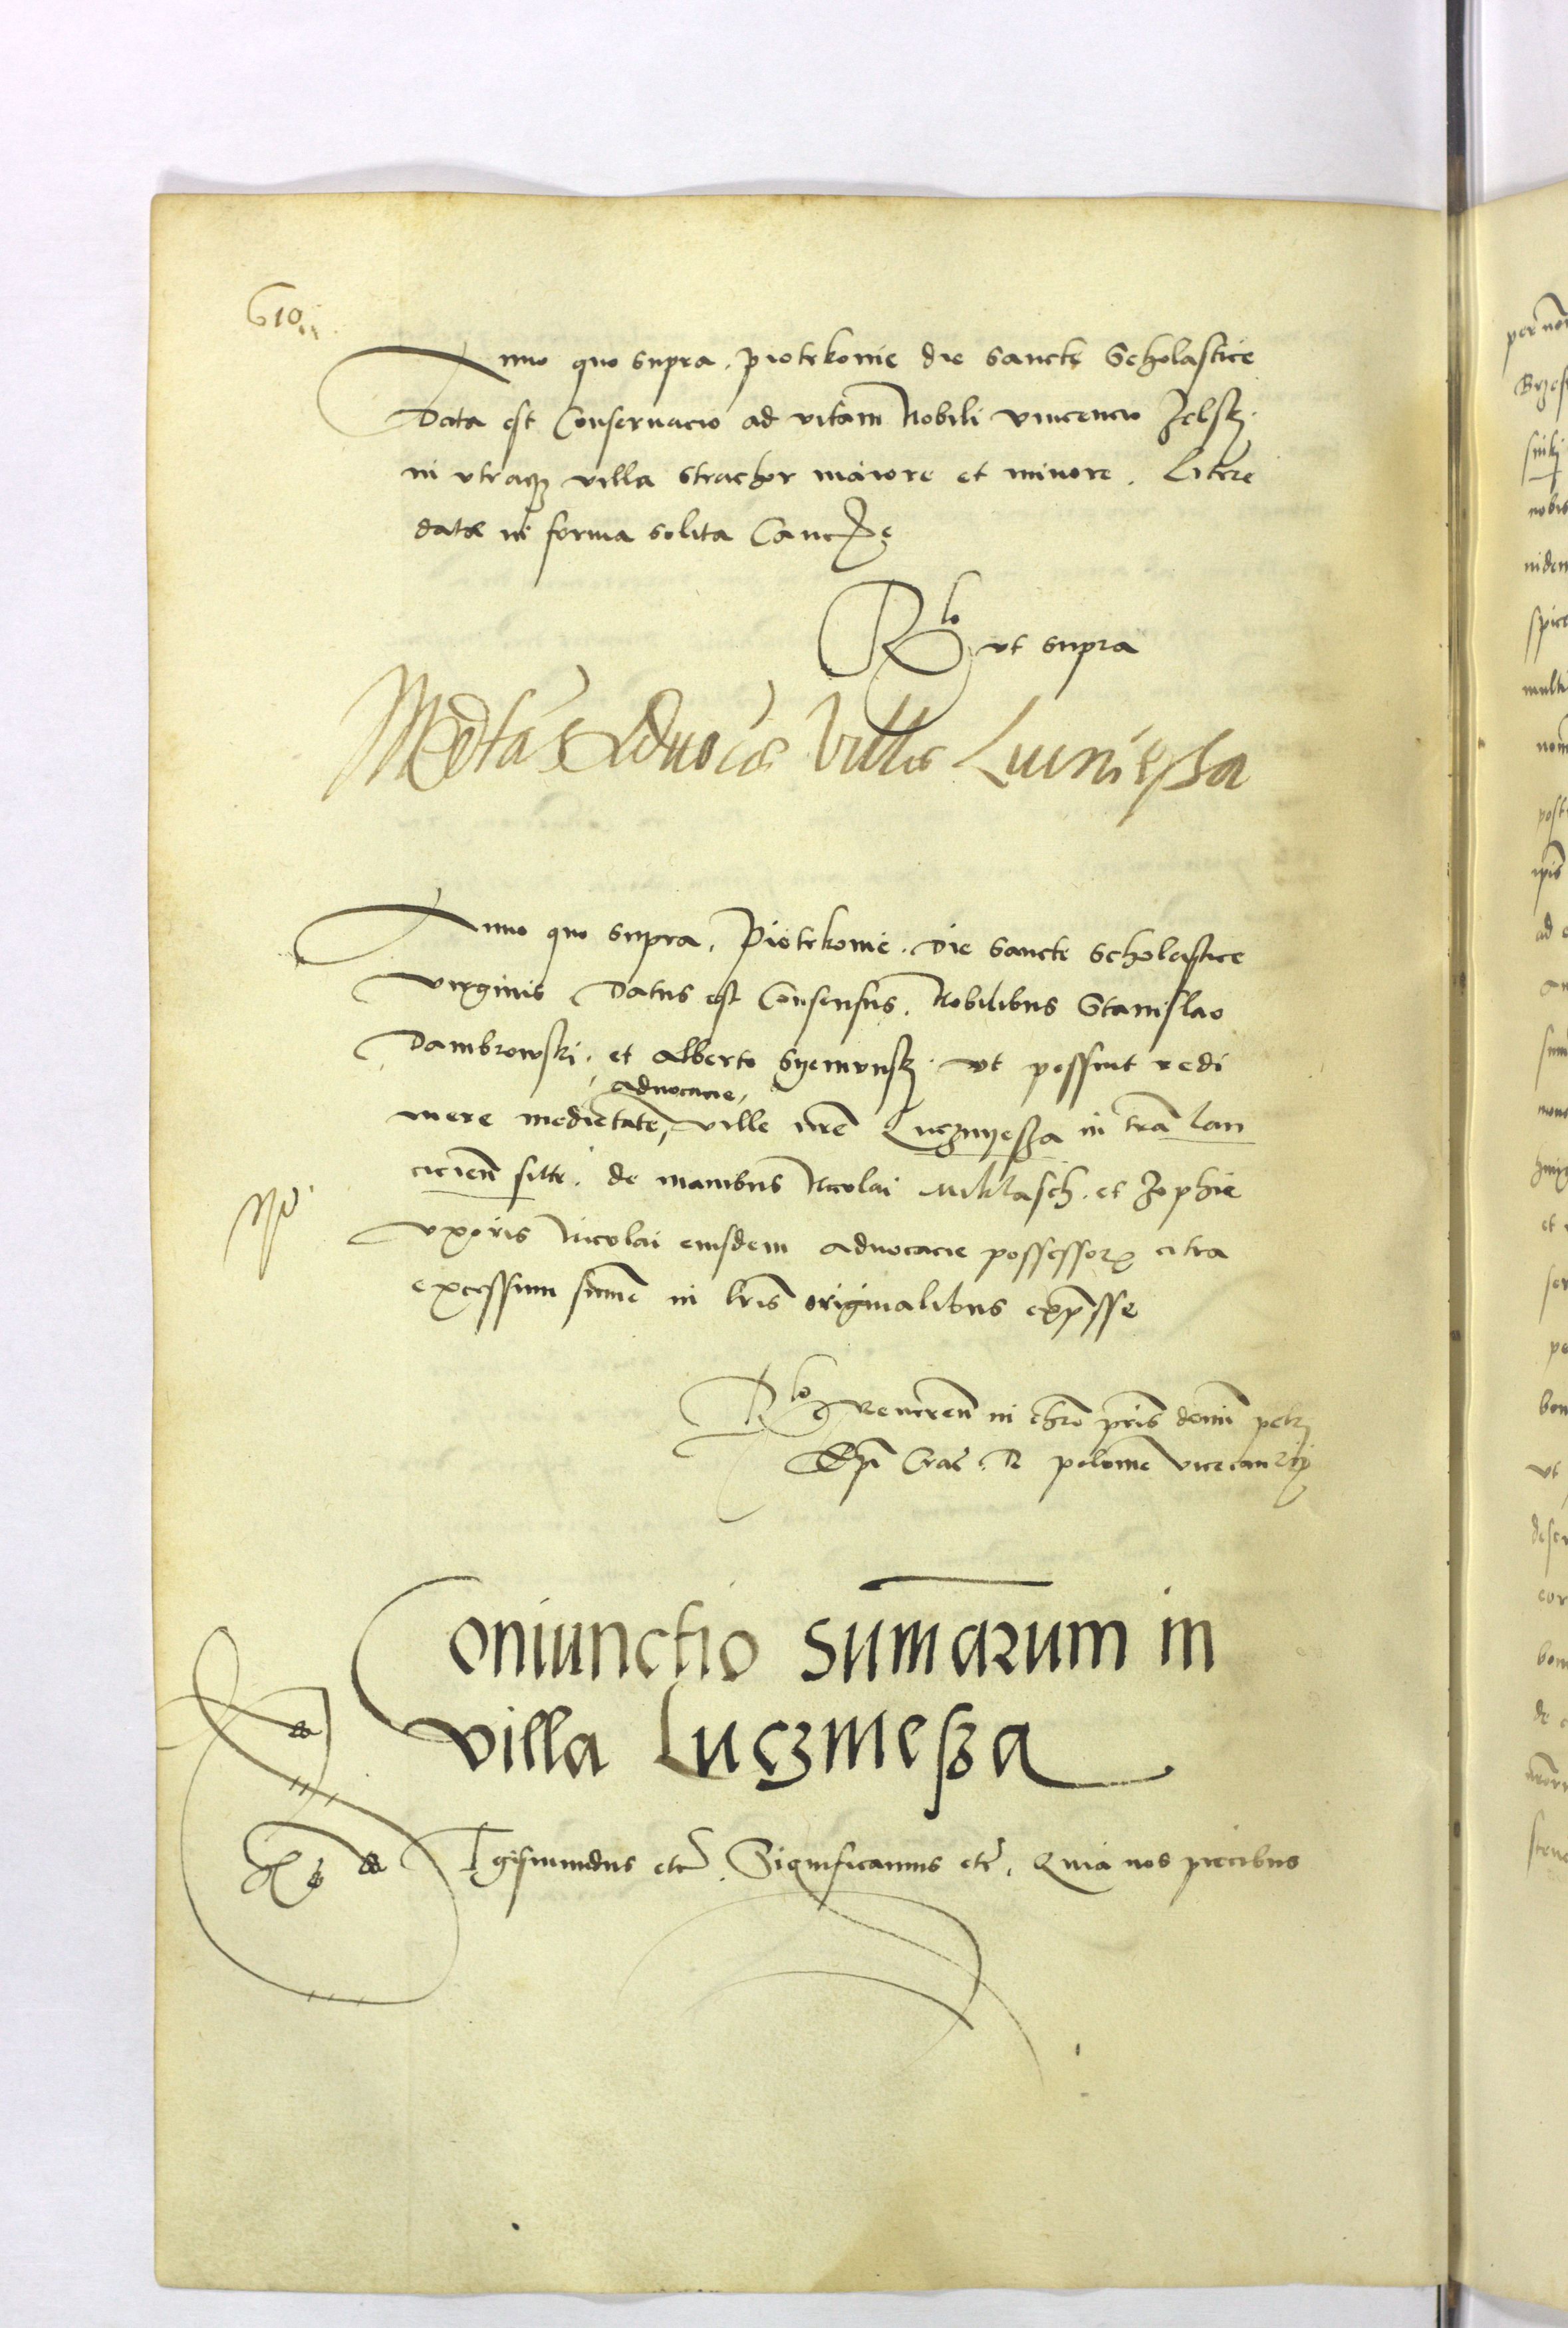 610
Anno quo supra. Piotrkovie die Sancte Scholastice
Data est Conservacio ad vitam Nobili Vincencio Jelskj.
in utraque villa Strachor maiore et minore. Litere
date in forma solita Canc
Rlo ut supra
Medtas Advocie Ville Lucniessa
Anno quo supra. Piotrkovie. Die Sancte Scholastice
virginis Datus est Consensus. Nobilibus Stanislao
Dambrowski. et Alberto Syemunskj. ut possint redi
advocacie
mere medietate, ville nre Luczmyessza in tra lan
cicien sitte. de manibus Nicolai Miklasch. et Zophie
uxoris Nicolai eiusdem advocacie possessor citra
excessum sume in lris originalibus expsse
Rlo Reveren in chro pris domini petri
Epi Crac. R polonie vicecancrij
Coniunctio sumarum in
villa Luczmessza
Sigismundus etc. Significamus etc. Quia nos precibus